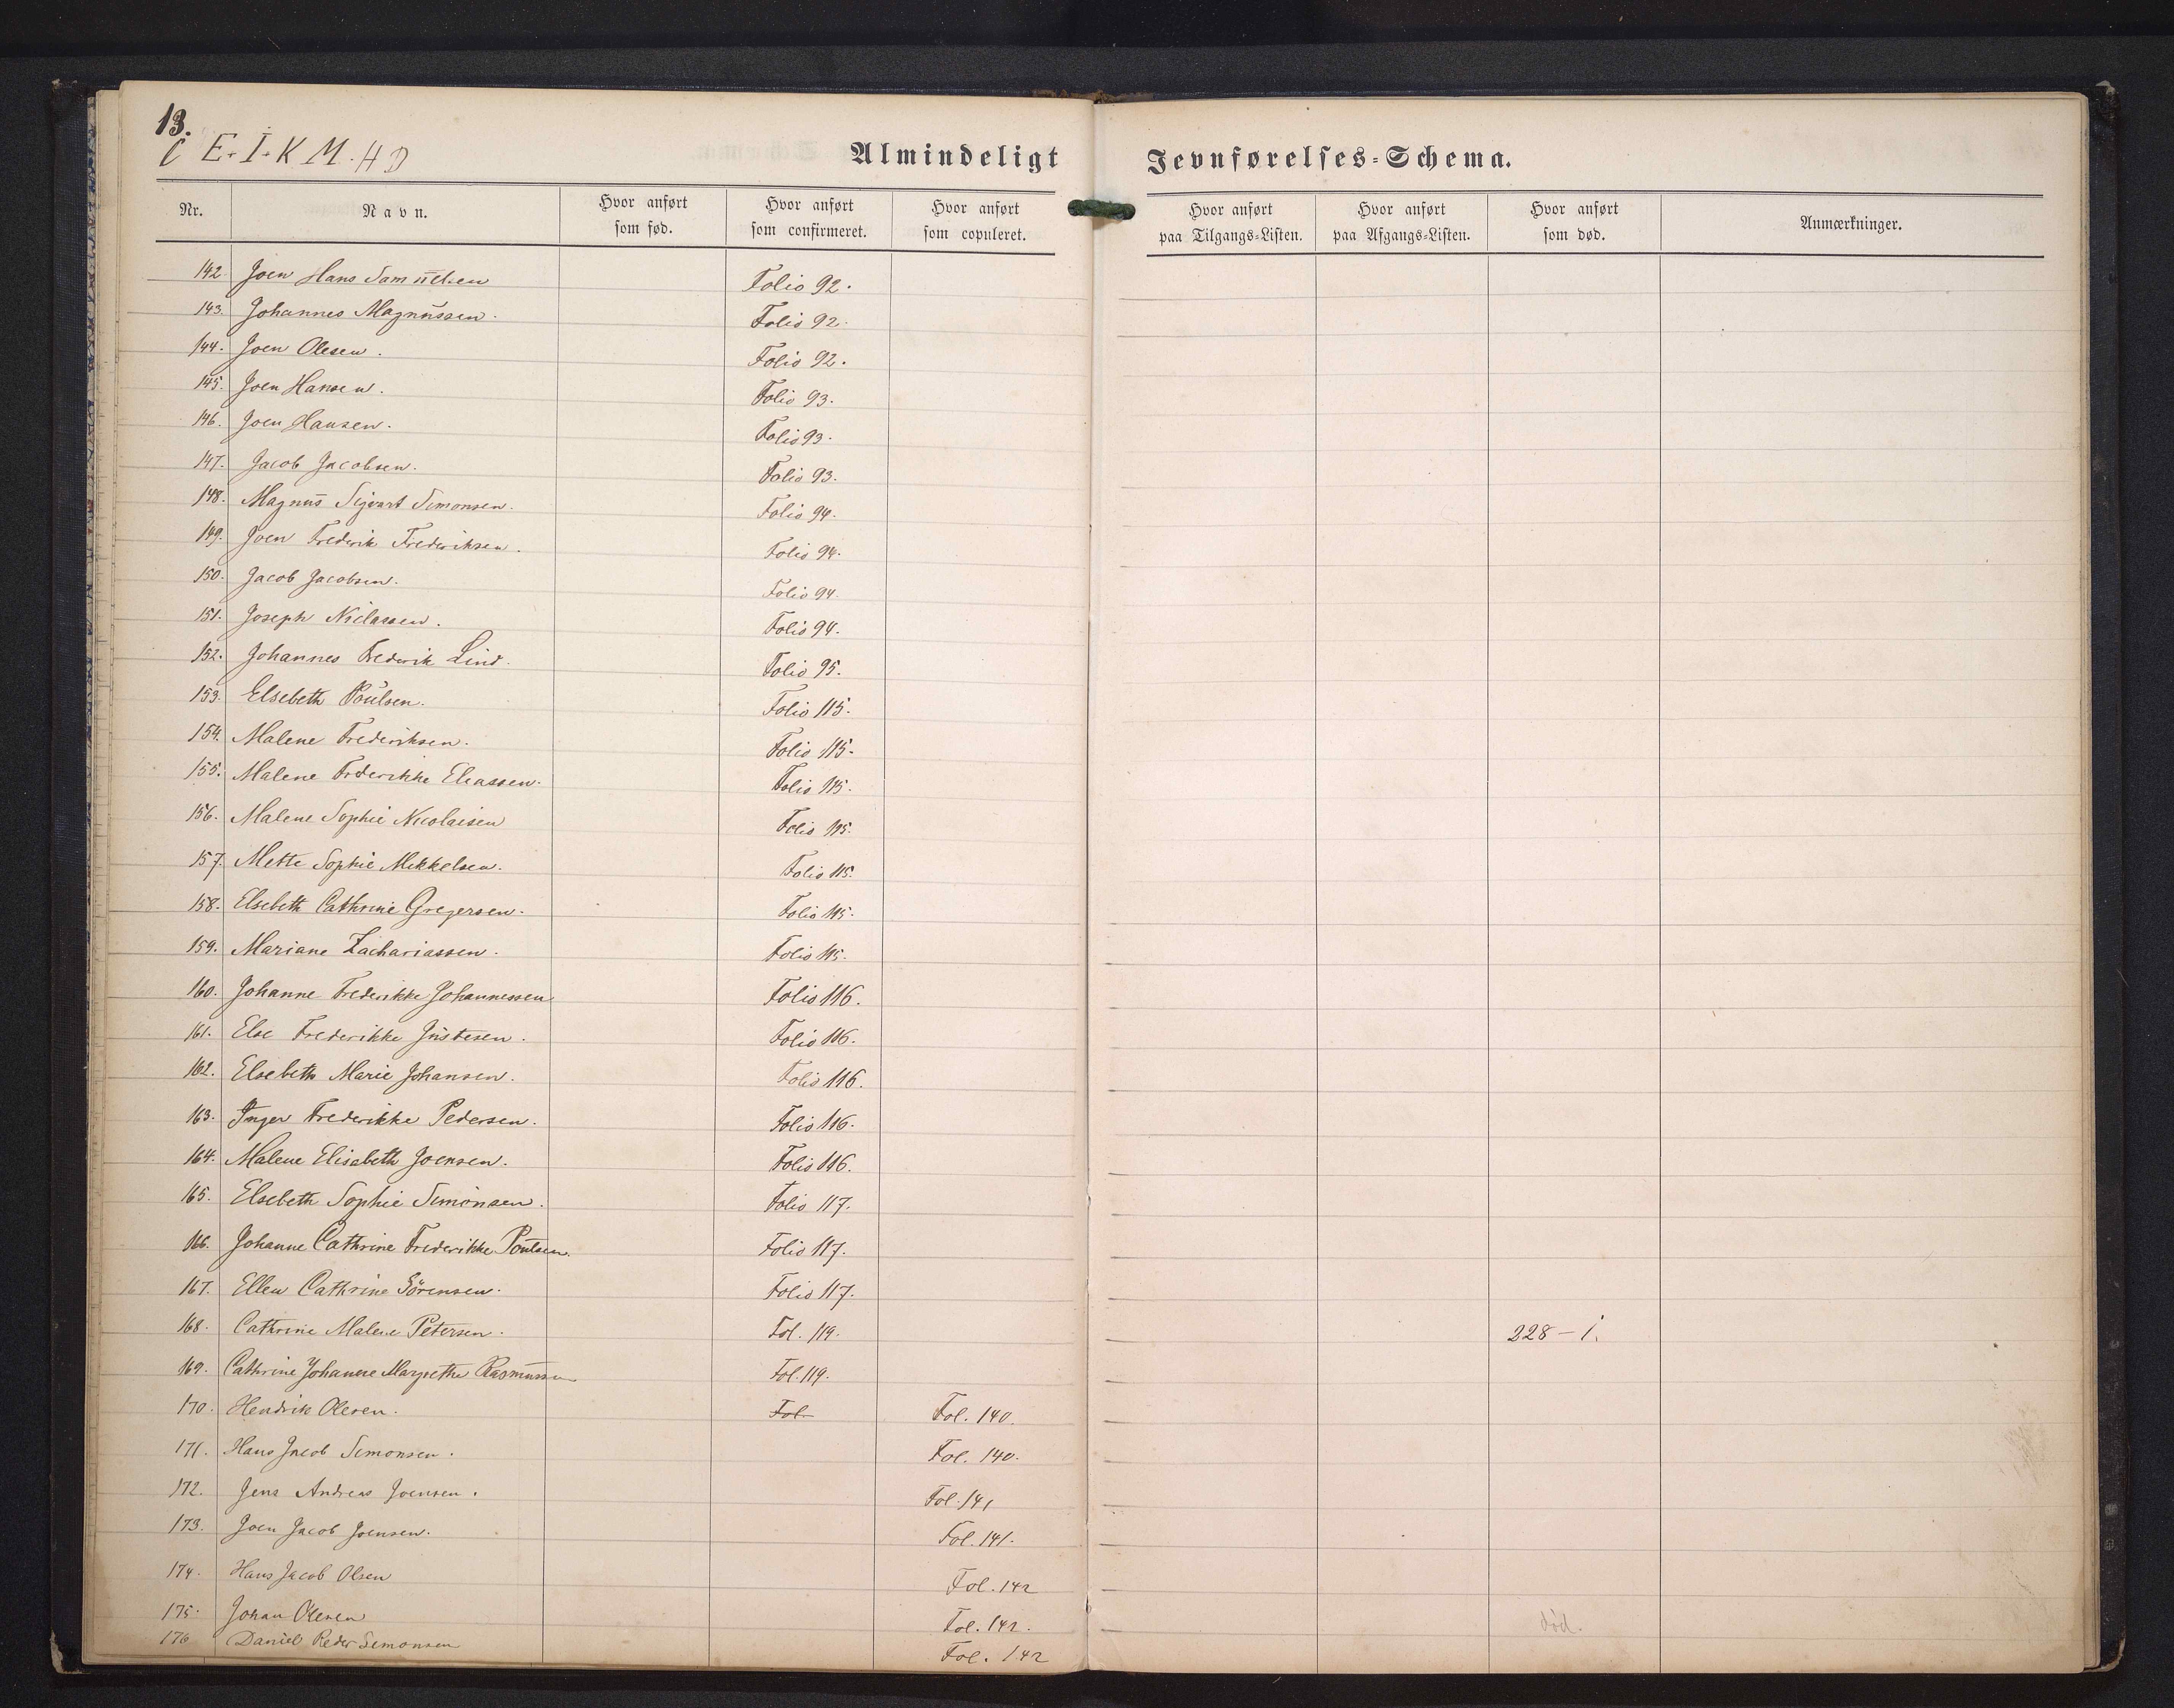 13.
C E. I. K M. H D
Almindeligt Jevnførelses=Schema.
Nr. Navn. Hvor anført som fød. Hvor anført som confirmeret. Hvor anført som copuleret. Hvor anført paa Tilgangs=Listen. Hvor anført paa Afgangs=Listen. Hvor anført som død. Anmærkninger.
142. Joen Hans Samuelsen Folio 92.
143. Johannes Magnussen. Folio 92.
144. Joen Olesen. Folio 92.
145. Joen Hansen. Folio 93.
146. Joen Hansen. Folio 93.
147. Jacob Jacobsen. Folio 93.
148. Magnus Sigvart Simonsen. Folio 94.
149. Joen Frederik Frederiksen. Folio 94.
150. Jacob Jacobsen. Folio 94.
151. Joseph Niclassen. Folio 94.
152. Johannes Frederik Lind. Folio 95.
153. Elsebeth Poulsen. Folio 115.
154. Malene Frederiksen. Folio 115.
155. Malene Frderikke Eliassen. Folio 115.
156. Malene Sophie Nicolaisen Folio 115.
157. Mette Sophie Mikkelsen. Folio 115.
158. Elsebeth Cathrine Gregersen. Folio 115.
159. Mariane Zachariassen. Folio 115.
160. Johanne Frederikke Johannessen Folio 116.
161. Else Frederikke Justesen. Folio 116.
162. Elsebeth Marie Johansen. Folio 116.
163. Inger Frederikke Pedersen. Folio 116.
164. Malene Elisabeth Joensen. Folio 116.
165. Elsebeth Sophie Simonsen. Folio 117.
166. Johanne Cathrine Frederikke Poulsen. Folio 117.
167. Ellen Cathrine Sörensen. Folio 117.
168. Cathrine Malene Petersen. Fol. 119. 228 - 1.
169. Cathrine Johanne Margrethe Rasmussen Fol. 119.
170. Hendrik Olesen. Fol. Fol. 140.
171. Hans Jacob Simonsen. Fol. 140.
172. Jens Andreas Joensen. Fol. 141
173. Joen Jacob Joensen. Fol. 141.
174. Hans Jacob Olsen Fol. 142
175. Johan Olesen Fol. 142. død.
176 Daniel Peder Simonsen Fol. 142